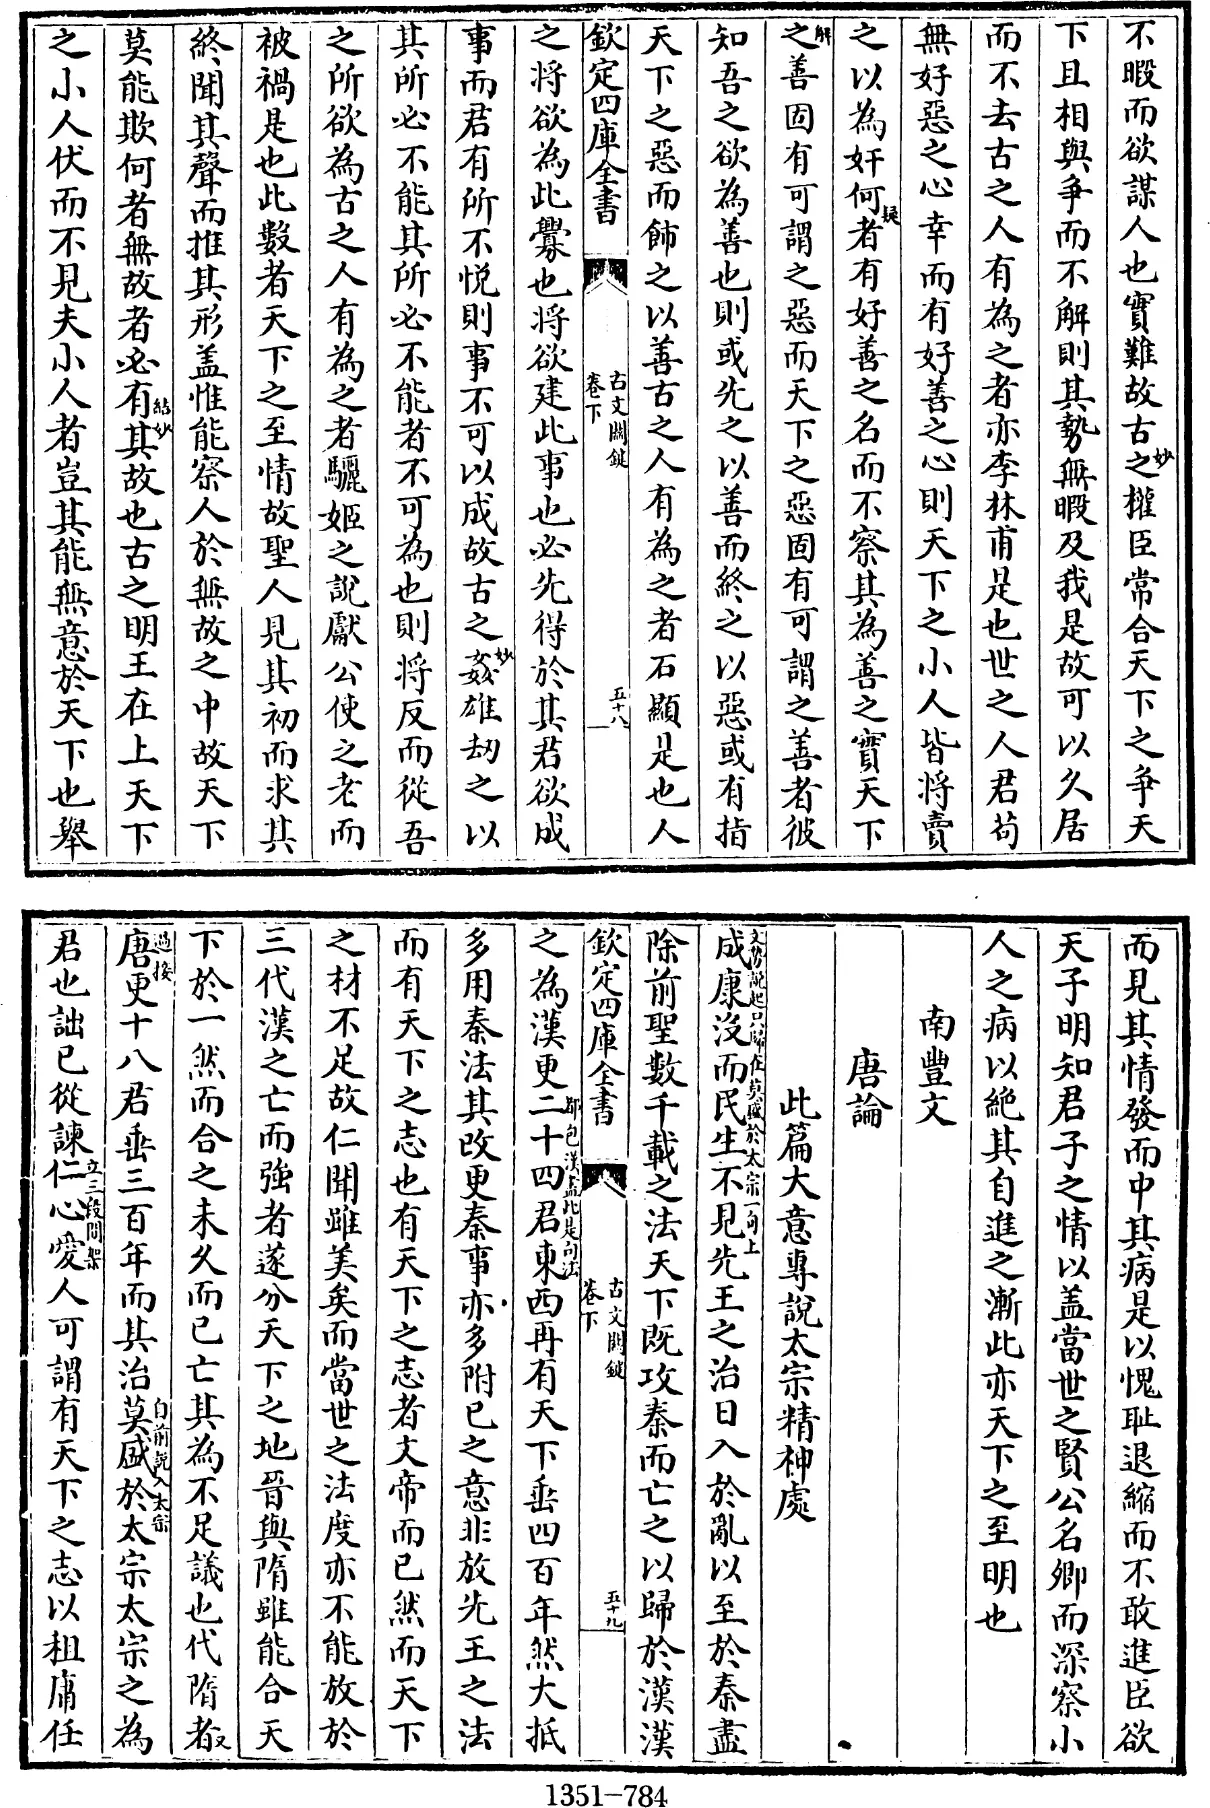 不暇而欲謀人也實難故古之權臣常合天下之争天
妙
下且相與争而不解則其勢無暇及我是故可以久居
而不去古之人有為之者亦李林甫是也世之人君苟
無好惡之心幸而有好善之心則天下之小人皆將賣
之以為奸何者有好善之名而不察其為善之實天下
疑
之善固有可謂之惡而天下之惡固有可謂之善者彼
解
知吾之欲為善也則或先之以善而終之以惡或有指
天下之惡而飾之以善古之人有為之者石顯是也人
欽定四庫全書
古文關鍵
卷下
五十八
之將欲為此釁也將欲建此事也必先得於其君欲成
事而君有所不悦則事不可以成故古之姦雄劫之以
妙
其所必不能其所必不能者不可為也則将反而從吾
之所欲為古之人有為之者驪姬之說獻公使之老而
被禍是也此數者天下之至情故聖人見其初而求其
終聞其聲而推其形盖惟能察人於無故之中故天下
莫能欺何者無故者必有其故也古之明王在上天下
結妙
之小人伏而不見夫小人者豈其能無意於天下也舉
而見其情發而中其病是以愧耻退縮而不敢進臣欲
天子明知君子之情以盖當世之賢公名卿而深察小
人之病以絶其自進之漸此亦天下之至明也
南豐文
唐論
此篇大意專說太宗精神處
文勢說起只歸在莫盛於太宗一句上
成康没而民生不見先王之治日入於亂以至於秦盡
除前聖數千載之法天下既攻秦而亡之以歸於漢漢
欽定四庫全書
古文關鍵
卷下
五十九
之為漢更二十四君東西再有天下垂四百年然大抵
都包漢盡此是句法
多用秦法其改更秦事亦多附己之意非放先王之法
而有天下之志也有天下之志者文帝而已然而天下
之材不足故仁聞雖美矣而當世之法度亦不能放於
三代漢之亡而強者遂分天下之地晉與隋雖能合天
下於一然而合之未久而已亡其為不足議也代隋者
又
唐更十八君垂三百年而其治莫盛於太宗太宗之為
過接
自前說入太宗
君也詘已從諫仁心愛人可謂有天下之志以租庸任
立三段間架
1351-784